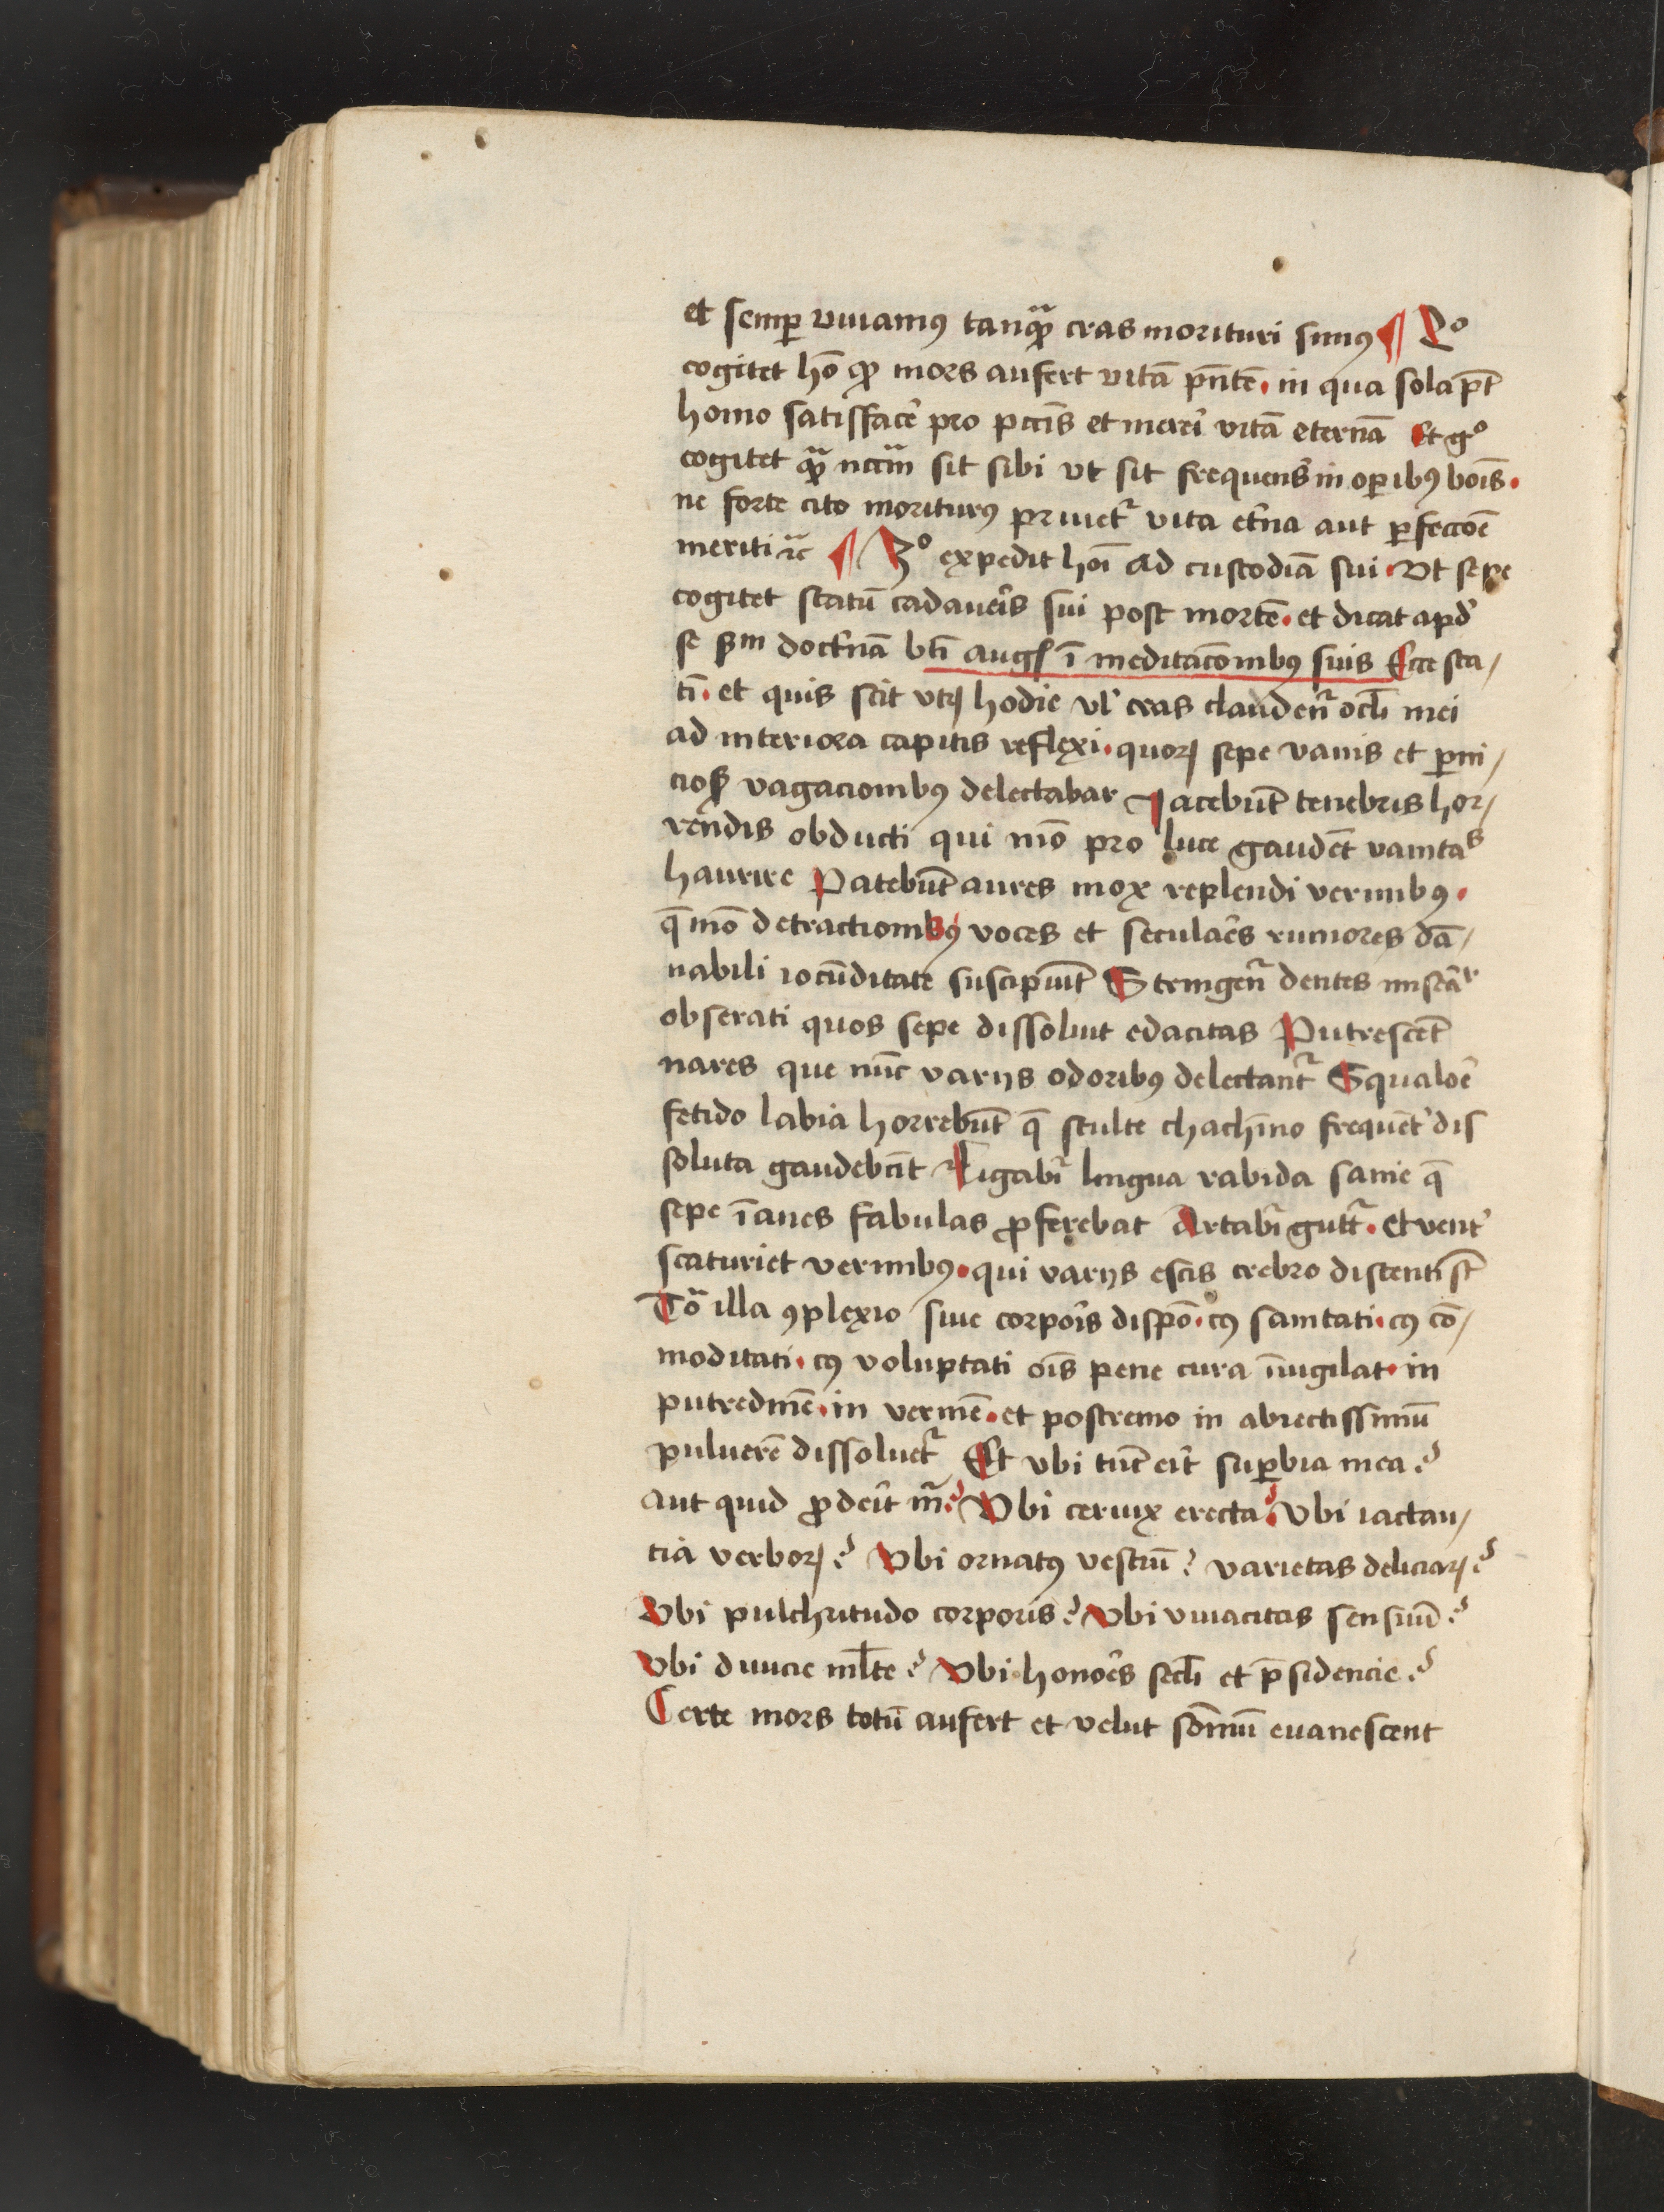 et semꝑ viuiamꝰ tanqᷓꝫ cras morituri simꝰ ¶ 2º
cogitet hō ꝙ mors aufert vitā pn̄tē · in qua sola pt̄
homo satisfacẽ pro pccīs et mereri vitā eternā Et gº
cogitet qᷓꝫ nccᷓm sit sibi vt sit frequens in oꝑibꝰ boīs ·
ne forte cito moriturꝰ priuetᷣ vita et̃na aut ꝑfeccōē
meriti ꝛcᷓ ¶ 3º expedit hoī ad custodiā sui · Vt sepe
cogitet statū cadaueris sui post mortē · et dicat apď
se ẞm doct̃nā bti augꝭ ī meditacōnibꝰ suis Ecce sta/
tī · et quis scit vtꝝ hodie vl̓ cras claudenᷣ ocl̄i mei
ad interiora capitis reflexi · quoꝝ sepe vanis et ꝑni/
ciosꝭ vagacionibꝰ delectabar Jacebūt tenebris hor/
rendis obducti qui mō pro luce gaudēt vanitaˢ
haurire Patebūt aures mox replendi vermibꝰ ·
q̄ mō detractionibꝰ voces et seculaẽs rumores dā/
nabili iocūditate suscipiūt Stringenᷣ dentes misēʳ
obserati quos sepe dissoluit edacitas Putrescēt
nares que nūc varijs odoribꝰ delectantᷣ Squaloẽ
fetido labia horrebūt q̄ stulte chachīno frequēt̓ dis
soluta gaudebāt Ligabiᷣ lingua rabida sanie q̄
sepe īanes fabulas ꝓferebat Artabiᷣ guttᷣ · et vent̓
scaturiet vermibꝰ · qui varijs escis crebro distenti st̄
Tōᷓ illa ꝯplexio siue corporis dispō · cꝰ sanitati · cꝰ cō/
moditati · cꝰ voluptati oīs pene cura īuigilat · in
putredinē · in vermē · et postremo in abiectissimū
puluerē dissoluetᷣ Et vbi tūc erit suꝑbia mea ?
Aut quid ꝓderit m̄ ? Vbi ceruix erecta ? Vbi iactan/
tia verboꝝ ? Vbi ornatꝰ vestiū ? varietas deliciaꝝ ?
Vbi pulchritudo corporis ? Vbi viuacitas sensuū ?
Vbi diuicie ml̄te ? Vbi honoẽs secl̄i et p̄sidencie ?
Certe mors totū aufert et velut sōmnū euanescent